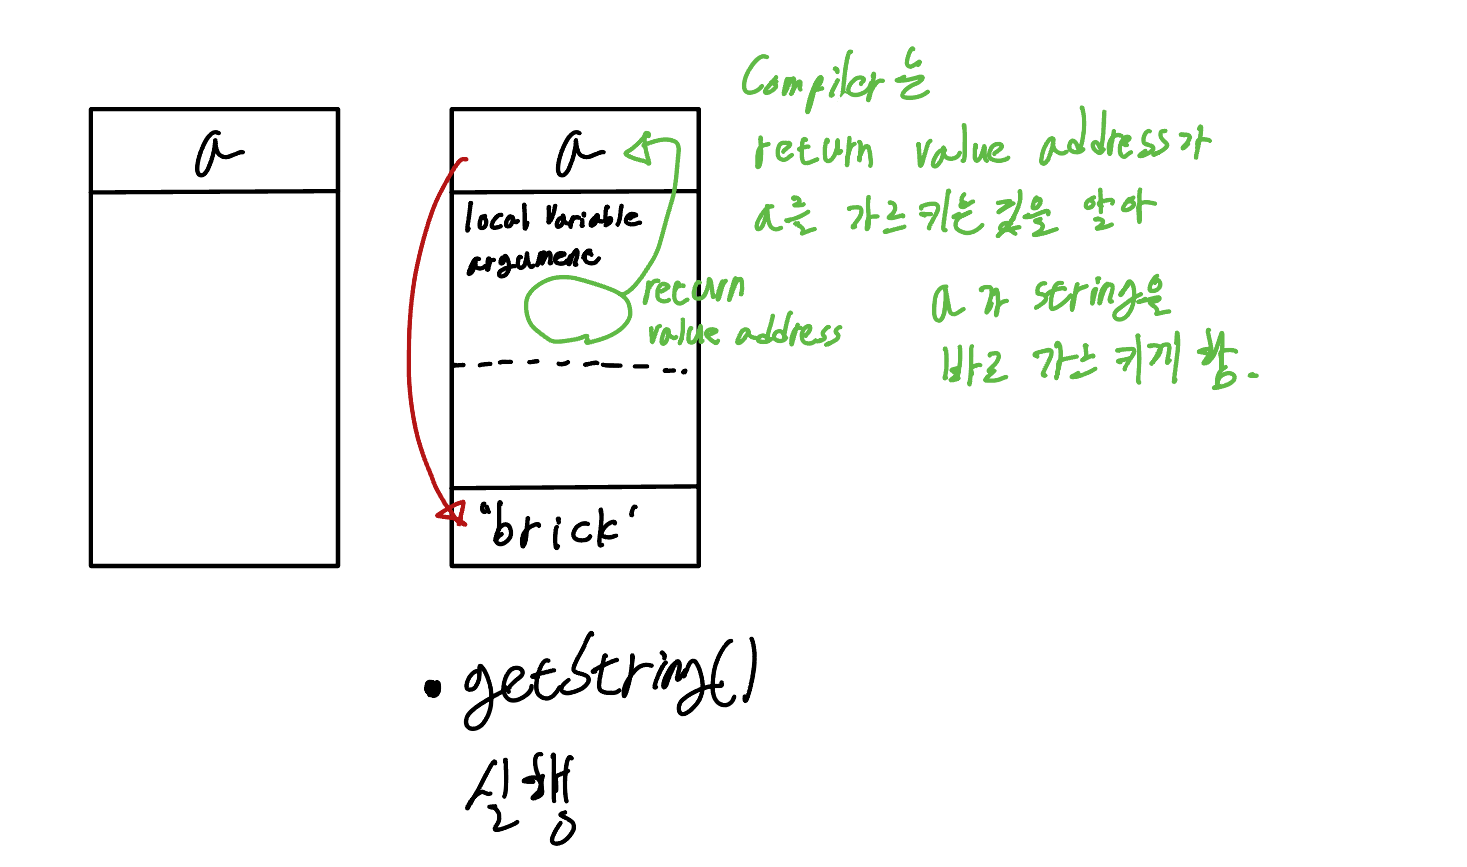 a
a
local variable
argument
return
value address
"brick"
Compiler는
return value address가
a를 가르키는 것을 알아
a가 string을
바로 가르키게 함.
• getString()
실행